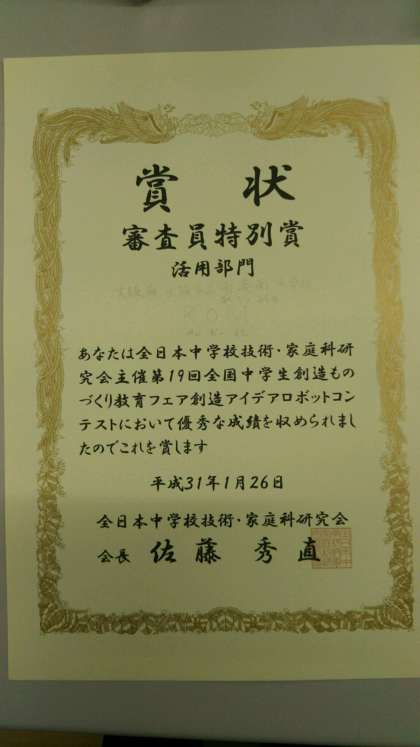 賞状
審査員特別賞
活用部門
あなたは全日本中学校技術・家庭科研
究会主催第19回全国中学生創造もの
づくり教育フェア創造アイデアロボットコン
テストにおいて優秀な成績を収められまし
たのでこれを賞します
平成31年1月26日
全日本中学校技術・家庭科研究会
会長 佐藤秀直